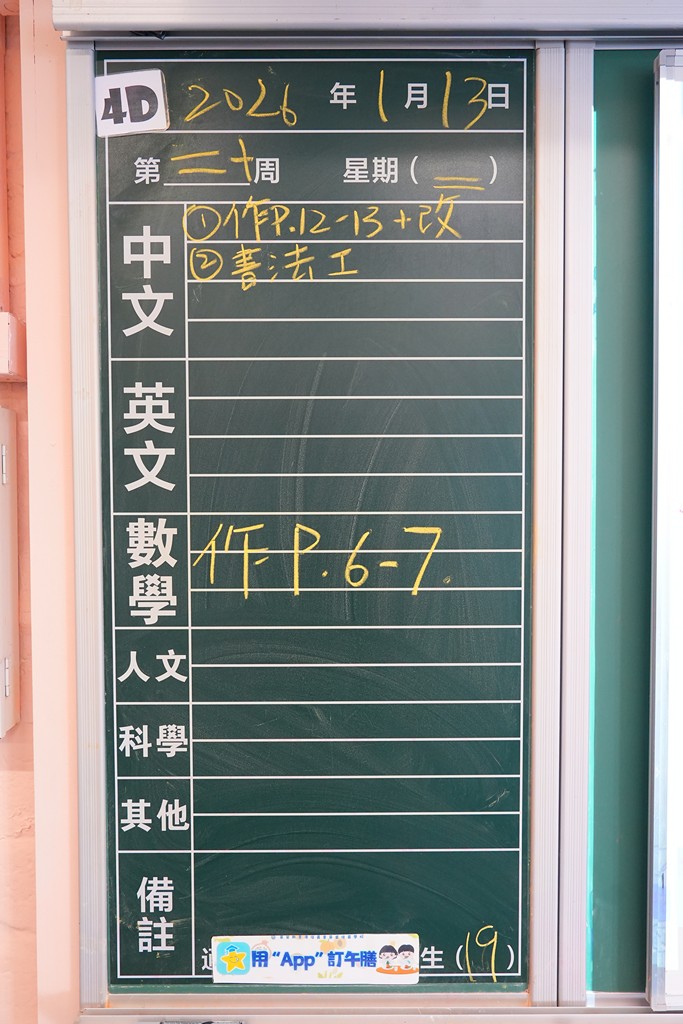 4D 2026年1月13日
第二十周 星期(二)
中文
①作P.12-13+改
②書法工
英文
數學
作P.6-7.
人文
科學
其他
備註
用“App”訂午膳 生(19)